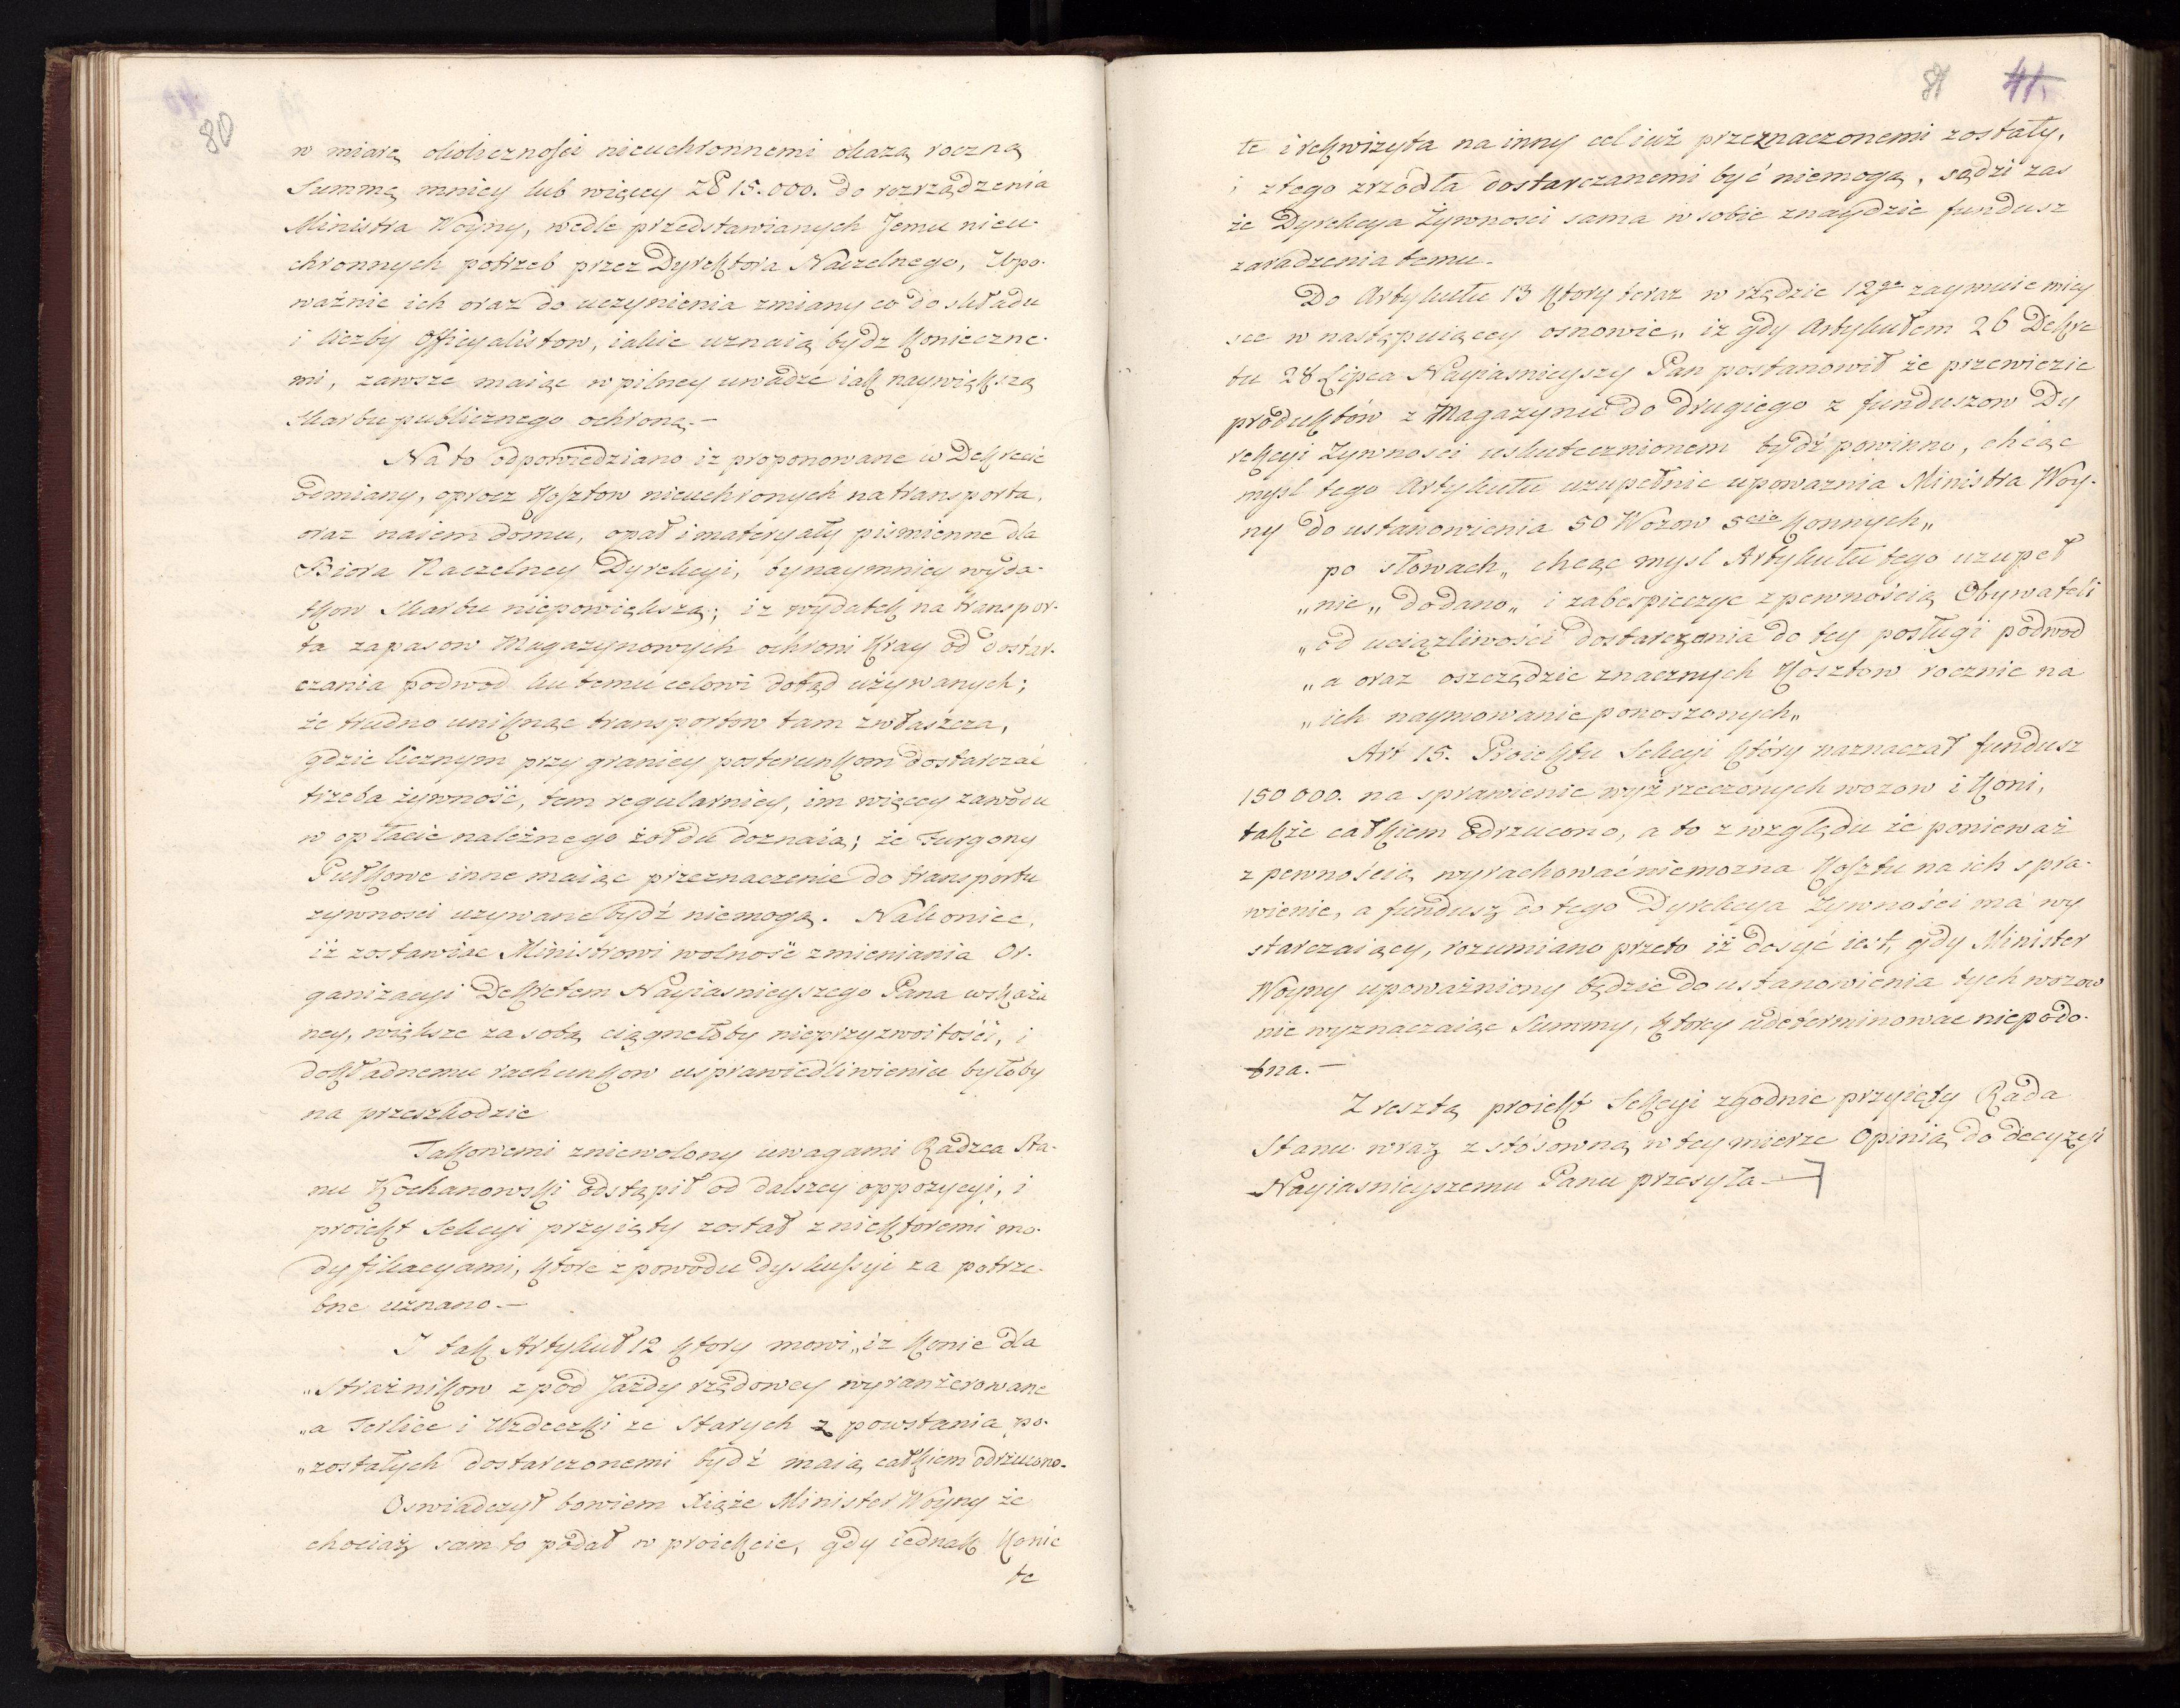 80
w miarę okolicznosci nieuchronnemi okażą roczną
Summę mniey lub więcey Zł 15.000. do rozrządzenia
Ministra Woyny, wedle przedstawianych Jemu nieu-
chronnych potrzeb przez Dyrektora Naczelnego, Upo-
ważnie ich oraz do uczynienia zmiany co do składu
i liczby Officyalistow, iakie uznaią bydz konieczne-
mi, zawsze maiąc w pilney uwadze iak naywiększą
Skarbu publicznego ochronę.—
Na to odpowiedziano iz proponowane w Dekrecie
odmiany, oprocz kosztow nieuchronych na transporta,
oraz naiem domu, opał i materyały pismienne dla
Biora Naczelney Dyrekcyi, bynaymniey wyda-
tkow Skarbu niepowiększą; iz wydatek na transpor-
ta zapasow Magazynowych ochroni Kray od dostar-
czania podwod ku temu celowi dotąd używanych;
że trudno uniknąc transportow tam zwłaszcza,
gdzie licznym przy granicy posterunkom dostarczać
trzeba żywność, tem regularniey, im więcey zawodu
w opłacie należnego żołdu doznaią; że Furgony
Pułkowe inne maiąc przeznaczenie do transportu
zywnosci uzywane bydź niemogą. Nakoniec,
iż zostawiac Ministrowi wolność zmieniania Or-
ganizacyi Dekretem Nayiasnieyszego Pana wskaza
ney, większe za sobą ciągnełoby nieprzyzwoitości, i
dokładnemu rachunkow usprawiedliwieniu byłoby
na przeszkodzie
Takowemi zniewolony uwagami Radzca Sta-
nu Kochanowski odstąpił od dalszey oppozycyi, i
proiekt Sekcyi przyięty został z niektoremi mo-
dyfikacyami, ktore z powodu dyskussyi za potrze-
bne uznano.—
I tak Artykuł 12 ktory mowi „iz konie dla
„Strażnikow z pod Jazdy rzędowey wyranżerowane
„a Terlice i Uzdeczki ze Starych z powstania po-
„zostałych dostarczonemi bydź maią całkiem odrzucono.
Oswiadczył bowiem Xiąże Minister Woyny że
chociaż sam to podał w proiekcie, gdy iednak konie
te
81 41.
te i rekwizyta na inny cel iuż przeznaczonemi zostały,
i z tego zrzodła dostarczanemi być niemogą, sądzi zas
że Dyrekcya Żywnosci sama w sobie znaydzie fundusz
zaradzenia temu.
Do Artykułu 13 ktory teraz w rzędzie 12go zaymuie miey
sce w następuiącey osnowie „ iz gdy Artykułem 26 Dekre
tu 28 Lipca Nayiasnieyszy Pan postanowił że przewiezie
produktów z Magazynu do drugiego z funduszow Dy
rekcyi Zywnosci uskutecznionem bydź powinno, chcąc
mysl tego Artykułu uzupełnic upowaznia Ministra Woy-
ny do ustanowienia 50 Wozow 5cio konnych„
po słowach „ chcąc mysl Artykułu tego uzupeł
„nic„ dodano „ i zabespieczyc z pewnością Obywateli
„od uciązliwości dostarczania do tey posługi podwod
„a oraz oszczędzic znacznych kosztow rocznie na
„ich naymowanie ponoszonych„
Art 15. Proiektu Sekcyi który naznaczał fundusz
150 000. na sprawienie wyż rzeczonych wozow i koni,
także całkiem odrzucono, a to z względu że ponieważ
z pewnością wyrachować niemozna kosztu na ich spra-
wienie, a fundusz do tego Dyrekcya Zywności má wy
starczaiący, rozumiano przeto iż dosyć iest, gdy Minister
Woyny upoważniony będzie do ustanowienia tych wozow
nie wyznaczaiąc Summy, ktorey udeterminowac niepodo-
bna.—
Z resztą proiekt Sekcyi zgodnie przyięty Rada
Stanu wraz z stósowną w tey mierze Opinią do decyzyi
Nayiasnieyszemu Panu przesyła—